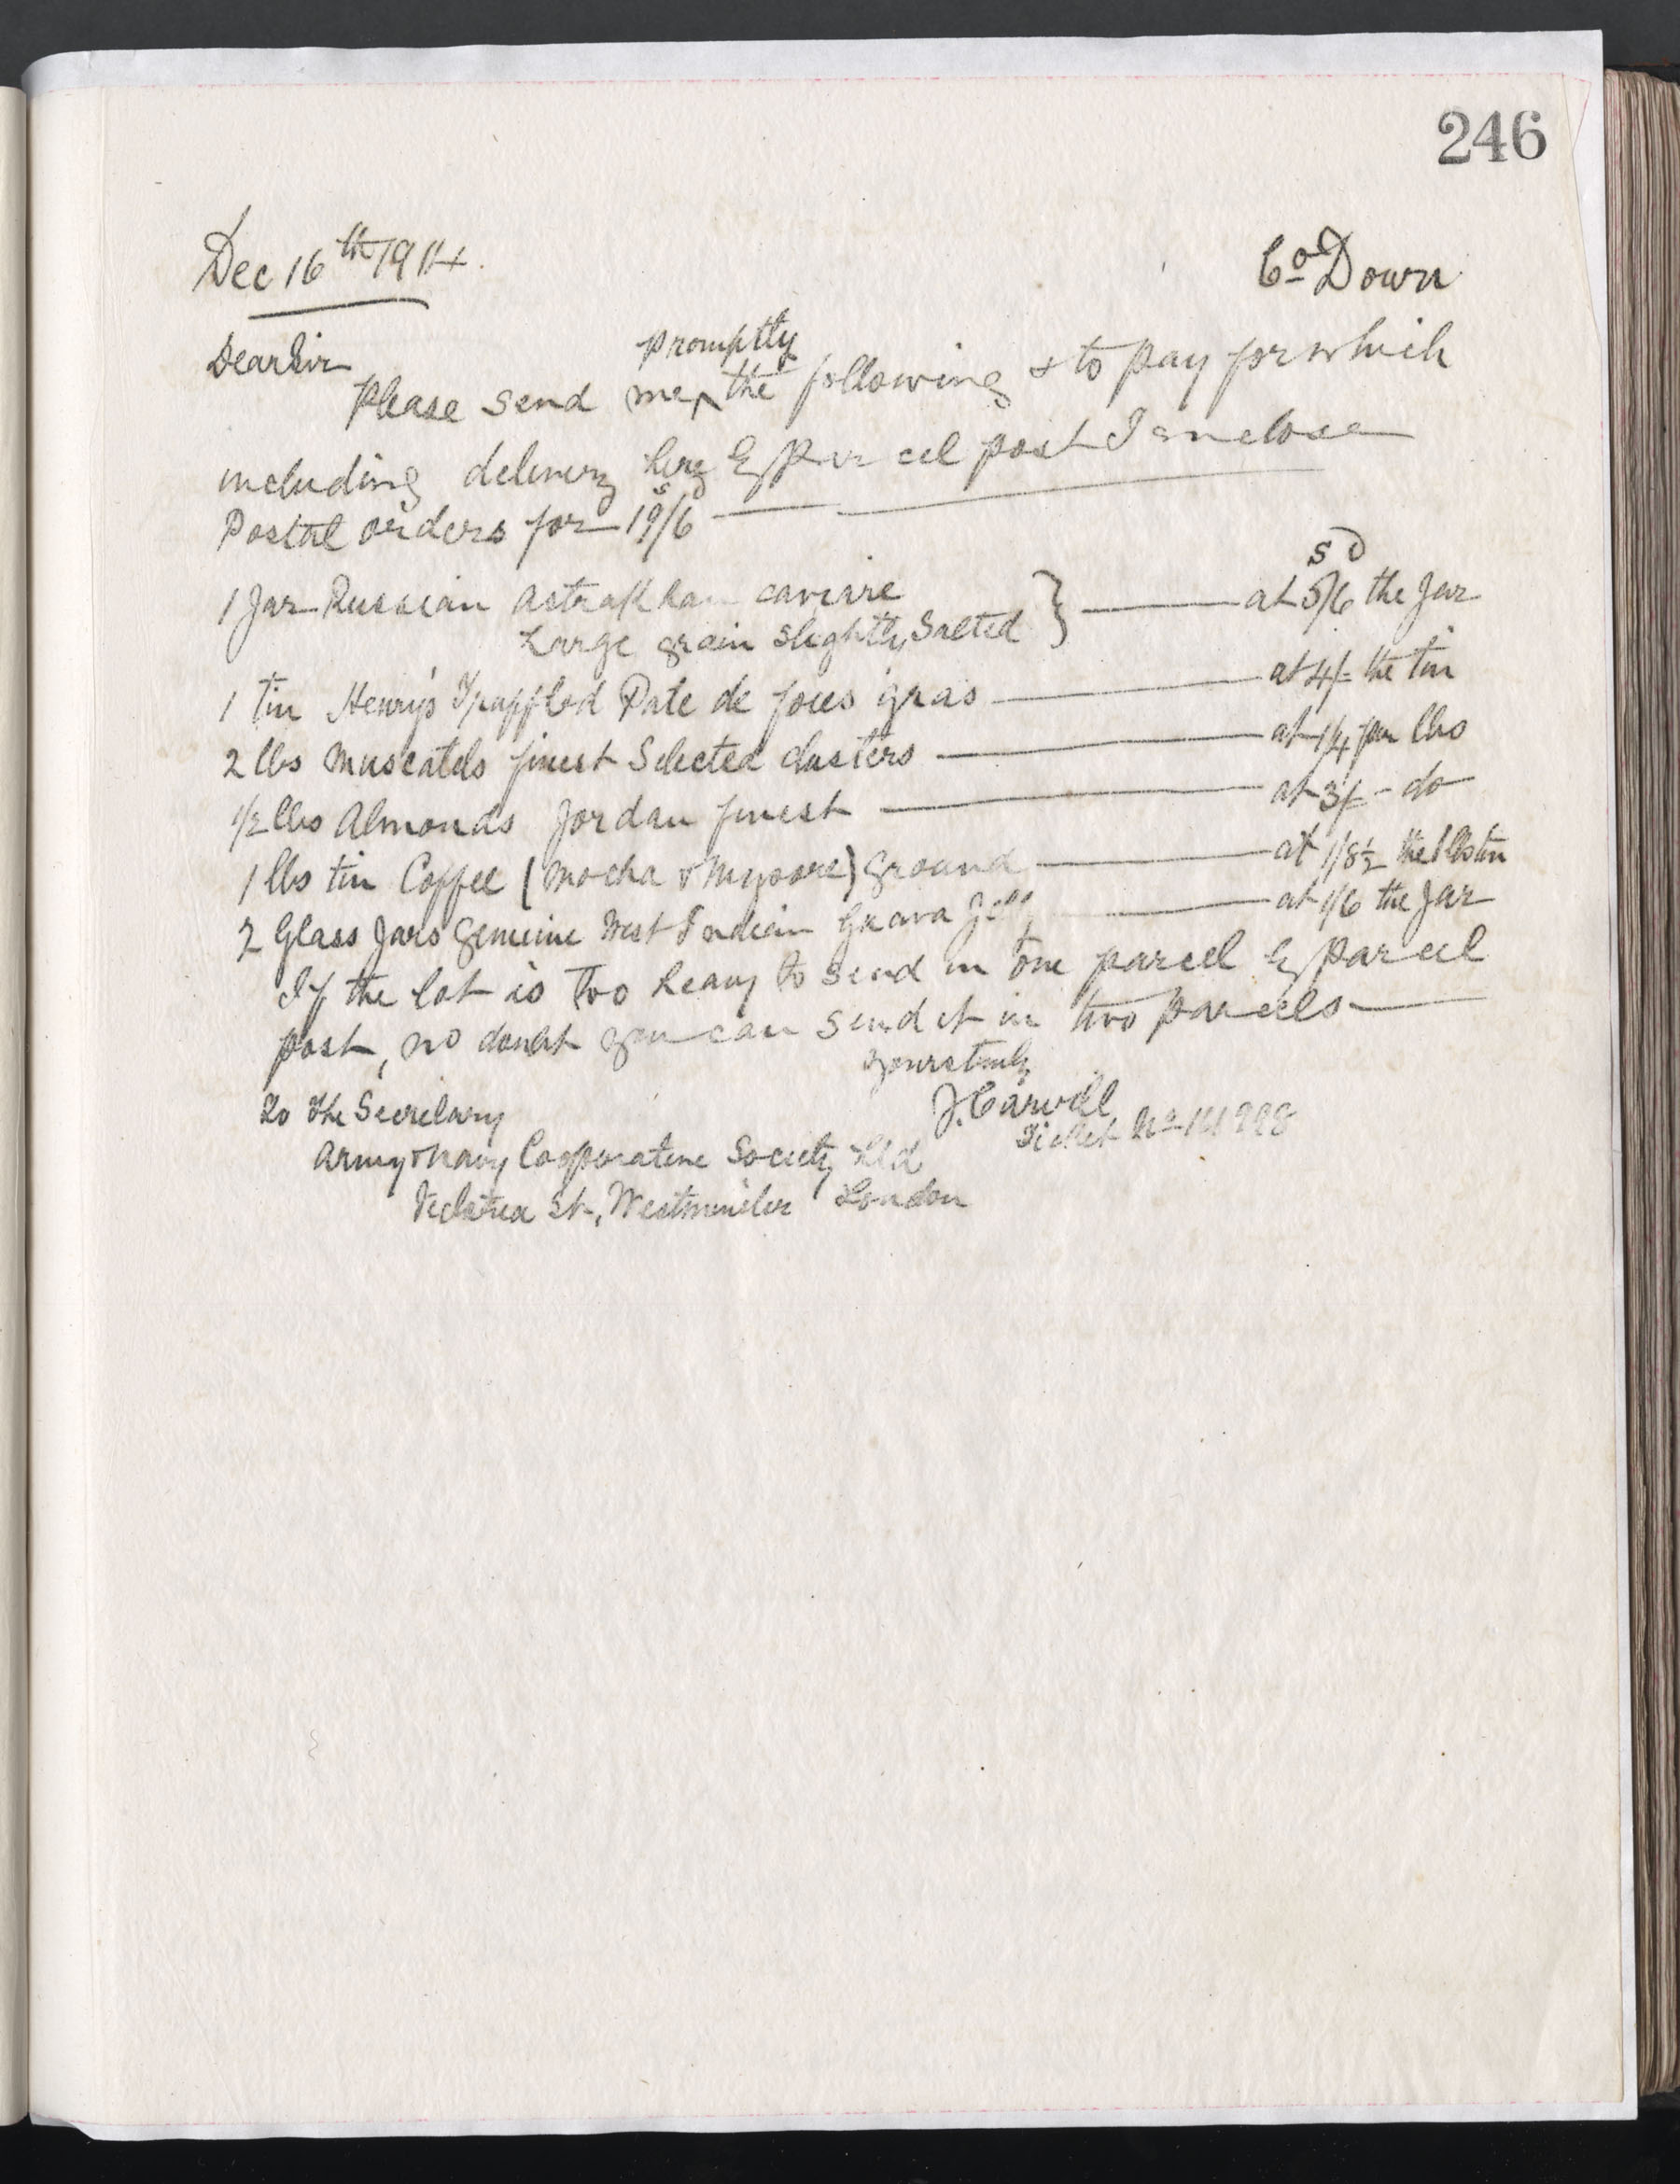 246
Dec 16th 1914. Co Down
Dear Sir
Please send me promptly the following & to pay for which
including delivery here by parcel post I enclose
Postal orders for 19s/6d
s d
1 Jar Russian Astrakhan caviare
Large grain slightly salted } at 5/6 the Jar
1 Tin Henry's Truffled Pate de foies gras at 4/- the tin
2 lbs Muscatels finest Selected clusters at 1/4 per lbs
1/2 lbs Almonds Jordan finest at 3/- - do
1 lbs tin Coffee (Mocha & Mysore) ground at 1/8½ the 1 lbs tin
2 Glass Jars genuine West Indian Guava Jelly at 1/6 the Jar
If the lot is too heavy to send in one parcel by parcel
post, no doubt you can send it in two parcels
Yours truly
J. Carvill
Ticket No
To The Secretary
Army & Navy Cooperative Society Ltd
Victoria St, Westminster London